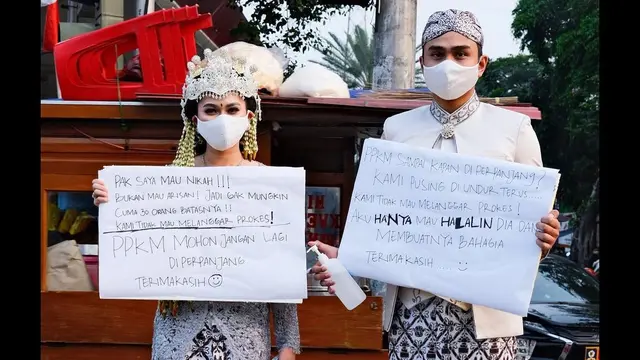 PAK SAYA MAU NIKAH!!!
BUKAN MAU ARISAN! JADI GAK MUNGKIN
CUMA 30 ORANG BATASNYA!!
KAMI TIDAK MAU MELANGGAR PROKES!
PPKM MOHON JANGAN LAGI
DI PERPANJANG
TERIMAKASIH
PPKM SAMPAI KAPAN DI PERPANJANG?!
KAMI PUSING DI UNDUR TERUS
KAMI TIDAK MAU MELANGGAR PROKES!
AKU HANYA MAU HALALIN DIA DAN
MEMBUATNYA BAHAGIA
TERIMAKASIH